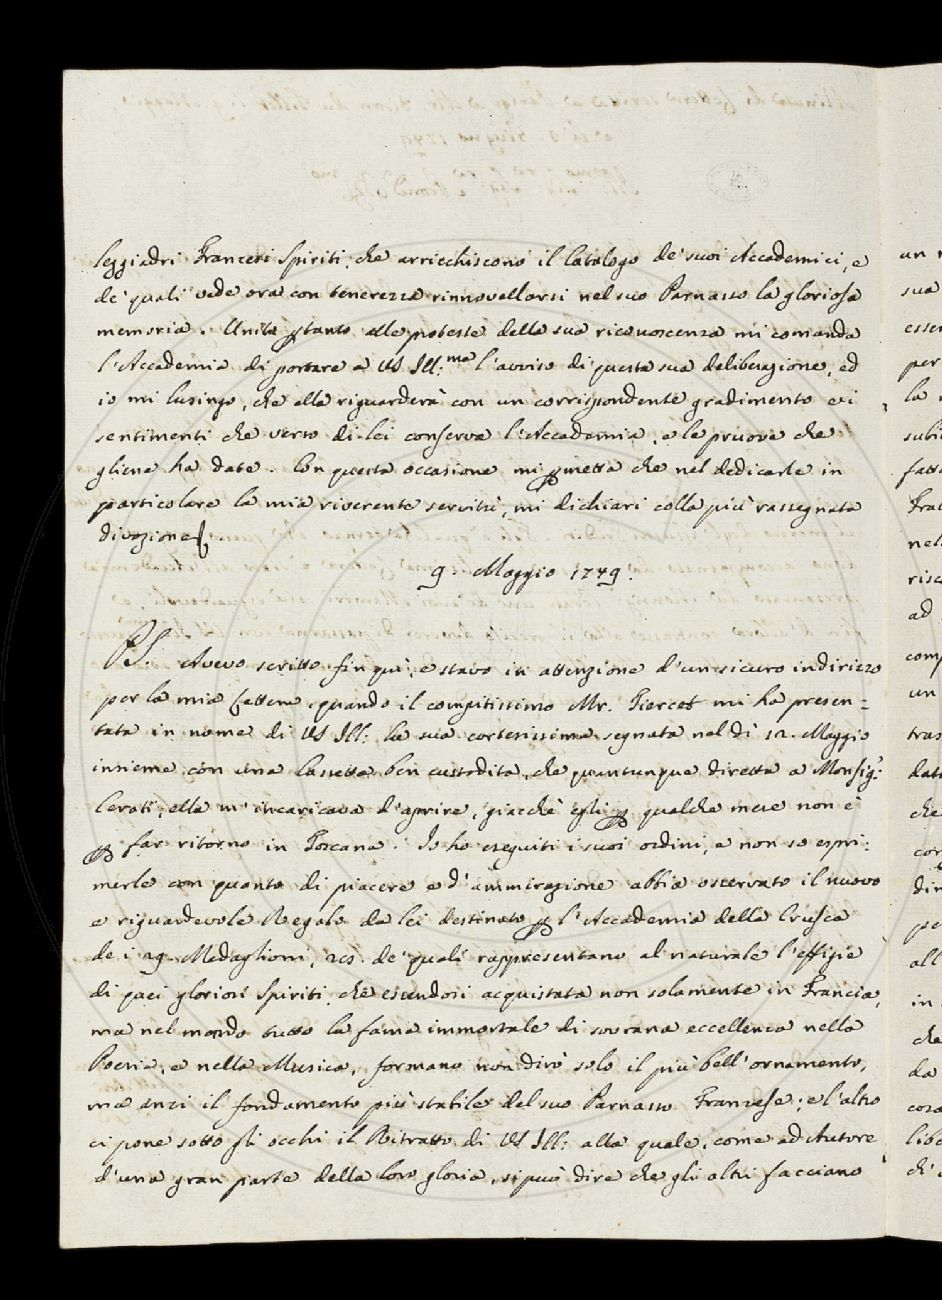 leggiadri Franzesi Spiriti, che arricchiscono il Catalogo de' suoi Accademici, e
de' quali vede ora con tenerezza rinnovellarsi nel suo Parnasso la gloriosa
memoria. Unita ptanto alle proteste della sua riconoscenza mi comanda
l'Accademia di portare a VS Ill:ma l'avviso di questa sua deliberazione, ed
io mi lusingo, che ella riguarderà con un corrispondente gradimento e i
sentimenti che verso di lei conserva l'Accademia, e le pruove che
gliene ha date. Con questa occasione mi pmetta che nel dedicarle in
particolare la mia riverente servitù, mi dichiari colla più rassegnata
divozione
9. Maggio 1749.
PS. Avevo scritto fin quì, e stavo in attenzione d'un sicuro indirizzo
per la mia lettera, quando il compitissimo Mr. Tiercet mi ha presen=
tata in nome di VS Ill: la sua cortesissima segnata nel dì 12. Maggio
insieme con una Cassetta ben custodita, che quantunque diretta a Monsigr:
Cerati, ella m'incaricava d'aprire, giacchè egli p qualche mese non è
p far ritorno in Toscana. Io ho eseguiti i suoi ordini, e non so espri:
merle con quanto di piacere e d'ammirazione abbia osservato il nuovo
e riguardevole Regalo da lei destinato p l'Accademia della Crusca
de i 29. Medaglioni, 28. de' quali rappresentano al naturale l'effigie
di quei gloriosi Spiriti, che essendosi acquistata non solamente in Francia,
ma nel mondo tutto la fama immortale di sovrana eccellenza nella
Poesia, e nella Musica, formano non dirò solo il più bell'ornamento,
ma anzi il fondamento più stabile del suo Parnasso Franzese; e l'altro
ci pone sotto gli occhi il Ritratto di VS Ill: alla quale, come ad Autore
d'una gran parte della loro gloria, si può dire che gli altri facciano
sua
per
la
ad
un
che
in
da